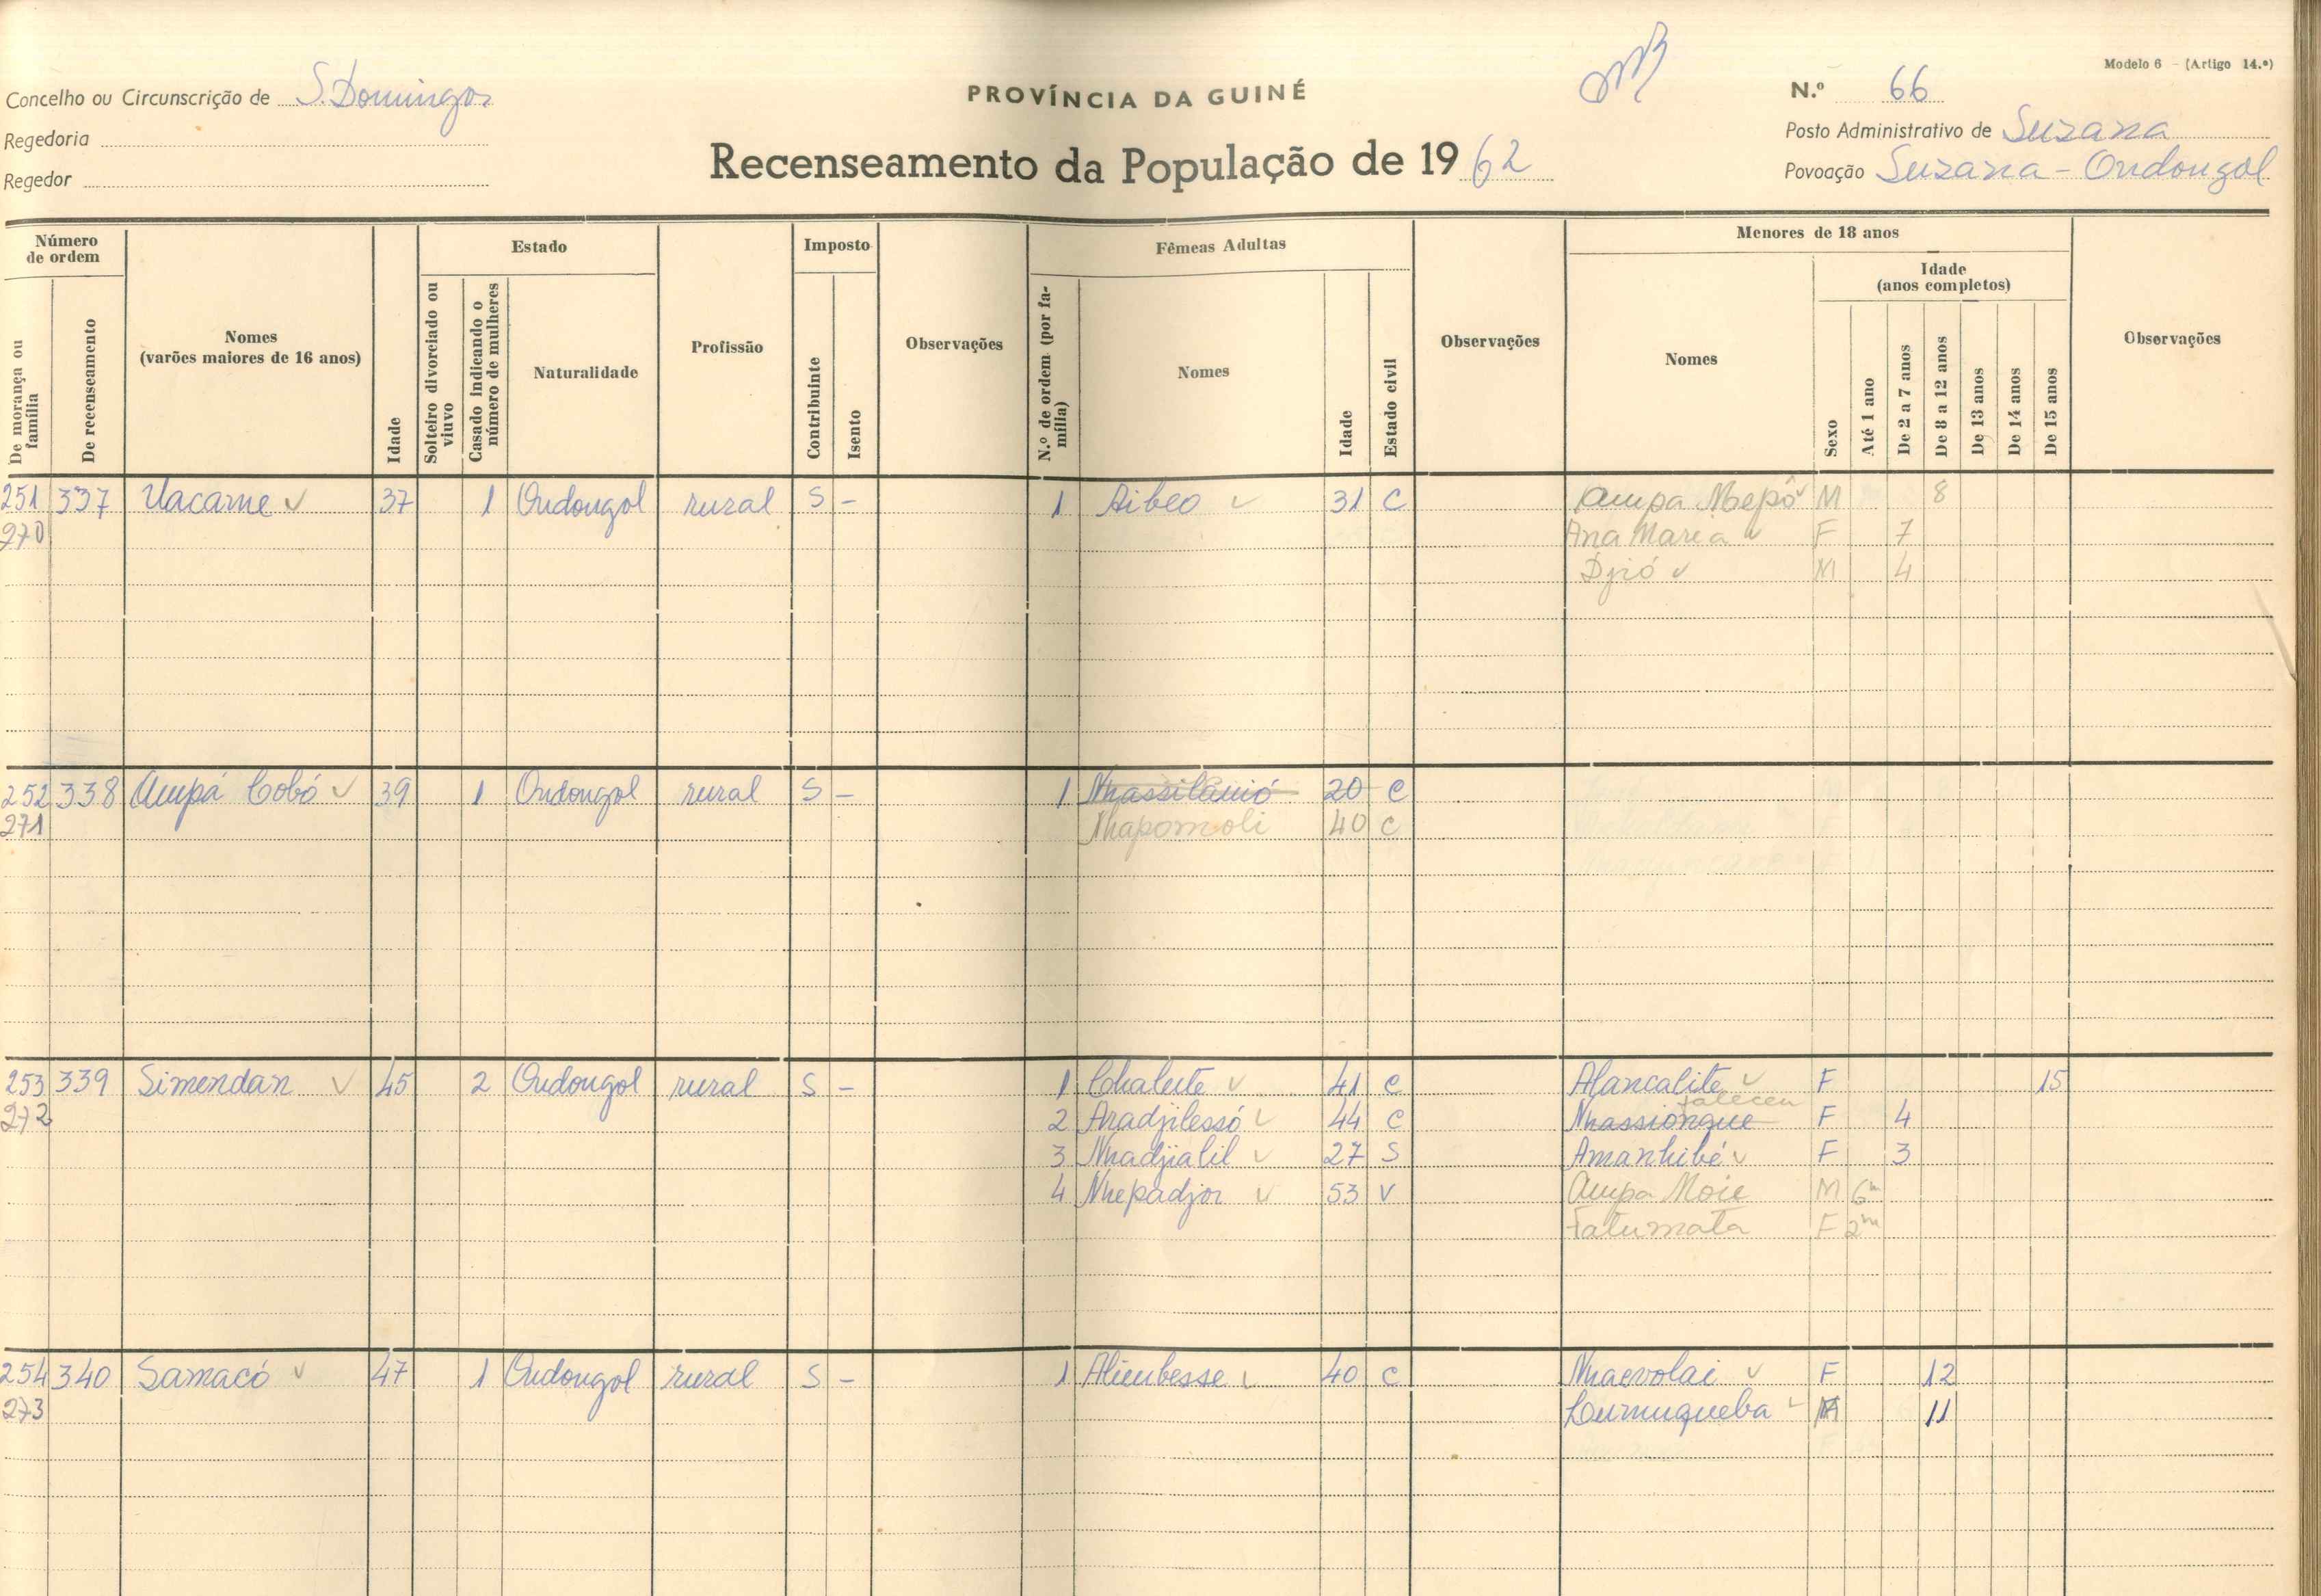 Modelo 6 - (Artigo 14.º)
Concelho ou Circunscrição de S. Domingos
PROVÍNCIA DA GUINÉ
N.º 66
Regedoria
Posto Administrativo de Suzana
Regedor
Recenseamento da População de 1962
Povoação Suzana - Ondongol
Número de ordem
De morança ou família
De recenseamento
Nomes
(varões maiores de 16 anos)
Idade
Estado
Solteiro divorciado ou viuvo
Casado indicando o número de mulheres
Naturalidade
Profissão
Imposto
Contribuinte
Isento
Observações
Fêmeas Adultas
N.º de ordem (por família)
Nomes
Idade
Estado civil
Observações
Menores de 18 anos
Nomes
Sexo
Idade
(anos completos)
Até 1 ano
De 2 a 7 anos
De 8 a 12 anos
De 13 anos
De 14 anos
De 15 anos
Observações
251 337 Uacame 37 1 Ondongol rural S - 1 Aibeo 31 C Ampa Mepô M 8
270 Ana Maria F 7
Djió M 4
252 338 Ampá Cobó 39 1 Ondongol rural S - 1 Nhassilamió 20 C
271 Nhapomoli 40 C
253 339 Simendan 45 2 Ondongol rural S - 1 Chaleite 41 C Alancalite F 15
faleceu
272 2 Aradjilessó 44 C Nhassiongue F 4
3 Nhadjialil 27 S Amanhibé F 3
4 Nhepadjor 53 V Ampa Moie M 6m
Fatumata F 2m
254 340 Samacó 47 1 Ondongol rural S - 1 Alieubesse 40 C Nhaevolai F 12
273 Lumuqueba M 11